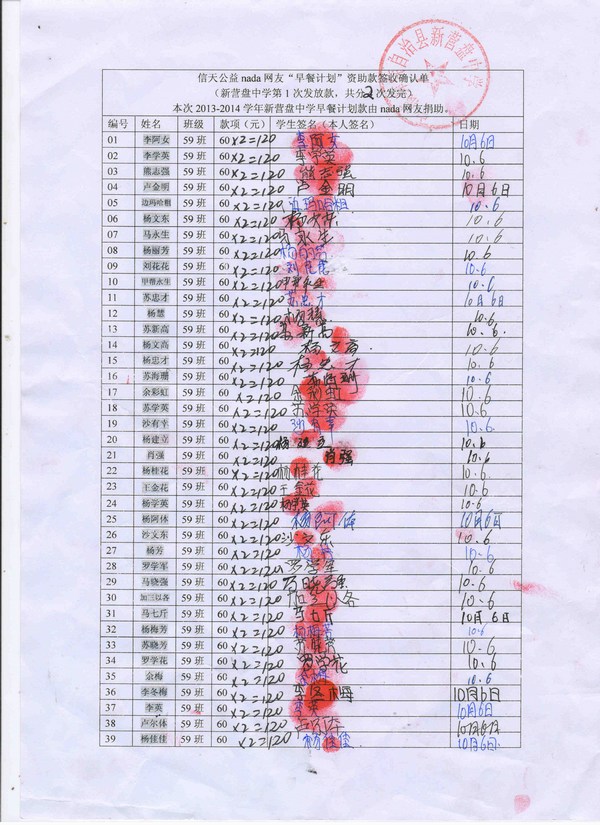 自治县新营盘中学
信天公益 nada 网友“早餐计划”资助款签收确认单
（新营盘中学第 1 次发放款，共分 2 次发完）
本次 2013-2014 学年新营盘中学早餐计划款由 nada 网友捐助。
编号 姓名 班级 款项（元） 学生签名（本人签名） 日期
01 李阿女 59 班 60×2=120 李阿女 10月6日
02 李学英 59 班 60×2=120 李学英 10.6
03 熊志强 59 班 60×2=120 熊志强 10.6
04 卢金明 59 班 60×2=120 卢金明 10月6日
05 边玛哈姆 59 班 60×2=120 10.6
06 杨文东 59 班 60×2=120 杨文东 10.6
07 马永生 59 班 60×2=120 马永生 10.6
08 杨丽芳 59 班 60×2=120 杨丽芳 10.6
09 刘花花 59 班 60×2=120 刘花花 10.6
10 甲帮永生 59 班 60×2=120 10.6
11 苏忠才 59 班 60×2=120 苏忠才 10月6日
12 杨慧 59 班 60×2=120 10.6
13 苏新高 59 班 60×2=120 苏新高 10.6.
14 杨文高 59 班 60×2=120 杨文高 10.6
15 杨忠才 59 班 60×2=120 10.6
16 苏海珊 59 班 60×2=120 苏海珊 10.6
17 余彩虹 59 班 60×2=120 余彩虹 10.6
18 苏学英 59 班 60×2=120 苏学英 10.6
19 沙有幸 59 班 60×2=120 沙有幸 10.6
20 杨建立 59 班 60×2=120 杨建立 10.6
21 肖强 59 班 60×2=120 肖强 10.6
22 杨桂花 59 班 60×2=120 杨桂花 10.6
23 王金花 59 班 60×2=120 王金花 10.6
24 杨学英 59 班 60×2=120 杨学英 10.6
25 杨阿体 59 班 60×2=120 杨阿体 10月6日
26 沙文东 59 班 60×2=120 沙文东 10.6
27 杨芳 59 班 60×2=120 杨芳 10.6
28 罗学军 59 班 60×2=120 罗学军 10.6
29 马晓强 59 班 60×2=120 马晓强 10.6
30 加三以各 59 班 60×2=120 加三以各 10.6
31 马七斤 59 班 60×2=120 马七斤 10月6日
32 杨梅芳 59 班 60×2=120 杨梅芳 10.6
33 苏晓芳 59 班 60×2=120 苏晓芳 10.6
34 罗学花 59 班 60×2=120 罗学花 10.6
35 余梅 59 班 60×2=120 余梅 10.6
36 李冬梅 59 班 60×2=120 李冬梅 10月6日
37 李英 59 班 60×2=120 李英 10月6日
38 卢尔体 59 班 60×2=120 10月6日
39 杨佳佳 59 班 60 ×2=120 杨佳佳 10月6日